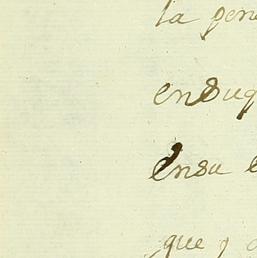 la pen
en suq
en su e
que y